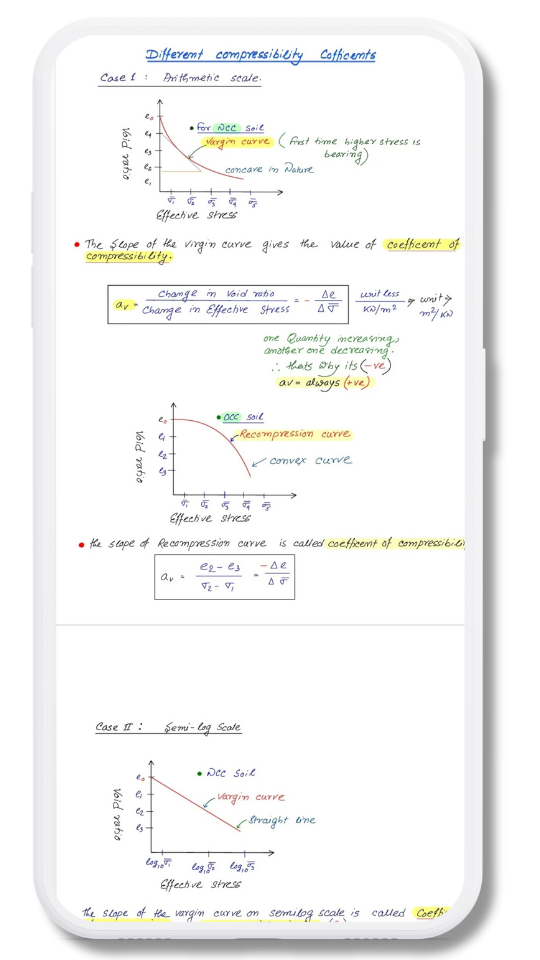 Different compressibility Cofficents
Case 1 : Arithmetic scale.
e₀
e₄
e₃
e₂
e₁
Void ratio
• For NCC soil
Vargin curve ( First time higher stress is
bearing)
concave in Nature
σ̅₁ σ̅₂ σ̅₃ σ̅₄ σ̅₅
Effective stress
• The slope of the virgin curve gives the value of coefficent of
compressibility.
aᵥ = Change in Void ratio / Change in Effective Stress = - Δe / Δσ̅ unit less / KN/m² → unit → m²/KN
one Quantity increasing,
another one decreasing.
∴ thats why its (-ve)
av = always (+ve)
e₀
e₁
e₂
e₃
Void ratio
• OCC soil
Recompression curve
convex curve
σ̅₁ σ̅₂ σ̅₃ σ̅₄ σ̅₅
Effective stress
• the slope of Recompression curve is called coefficent of compressibili
aᵥ = e₂ - e₃ / σ̅₂ - σ̅₁ = -Δe / Δσ̅
Case II : Semi-log Scale
e₀
e₁
e₂
e₃
Void ratio
• NCC soil
Vargin curve
straight line
log₁₀σ̅₁ log₁₀σ̅₂ log₁₀σ̅₃
Effective stress
the slope of the vargin curve on semilog scale is called Coeff